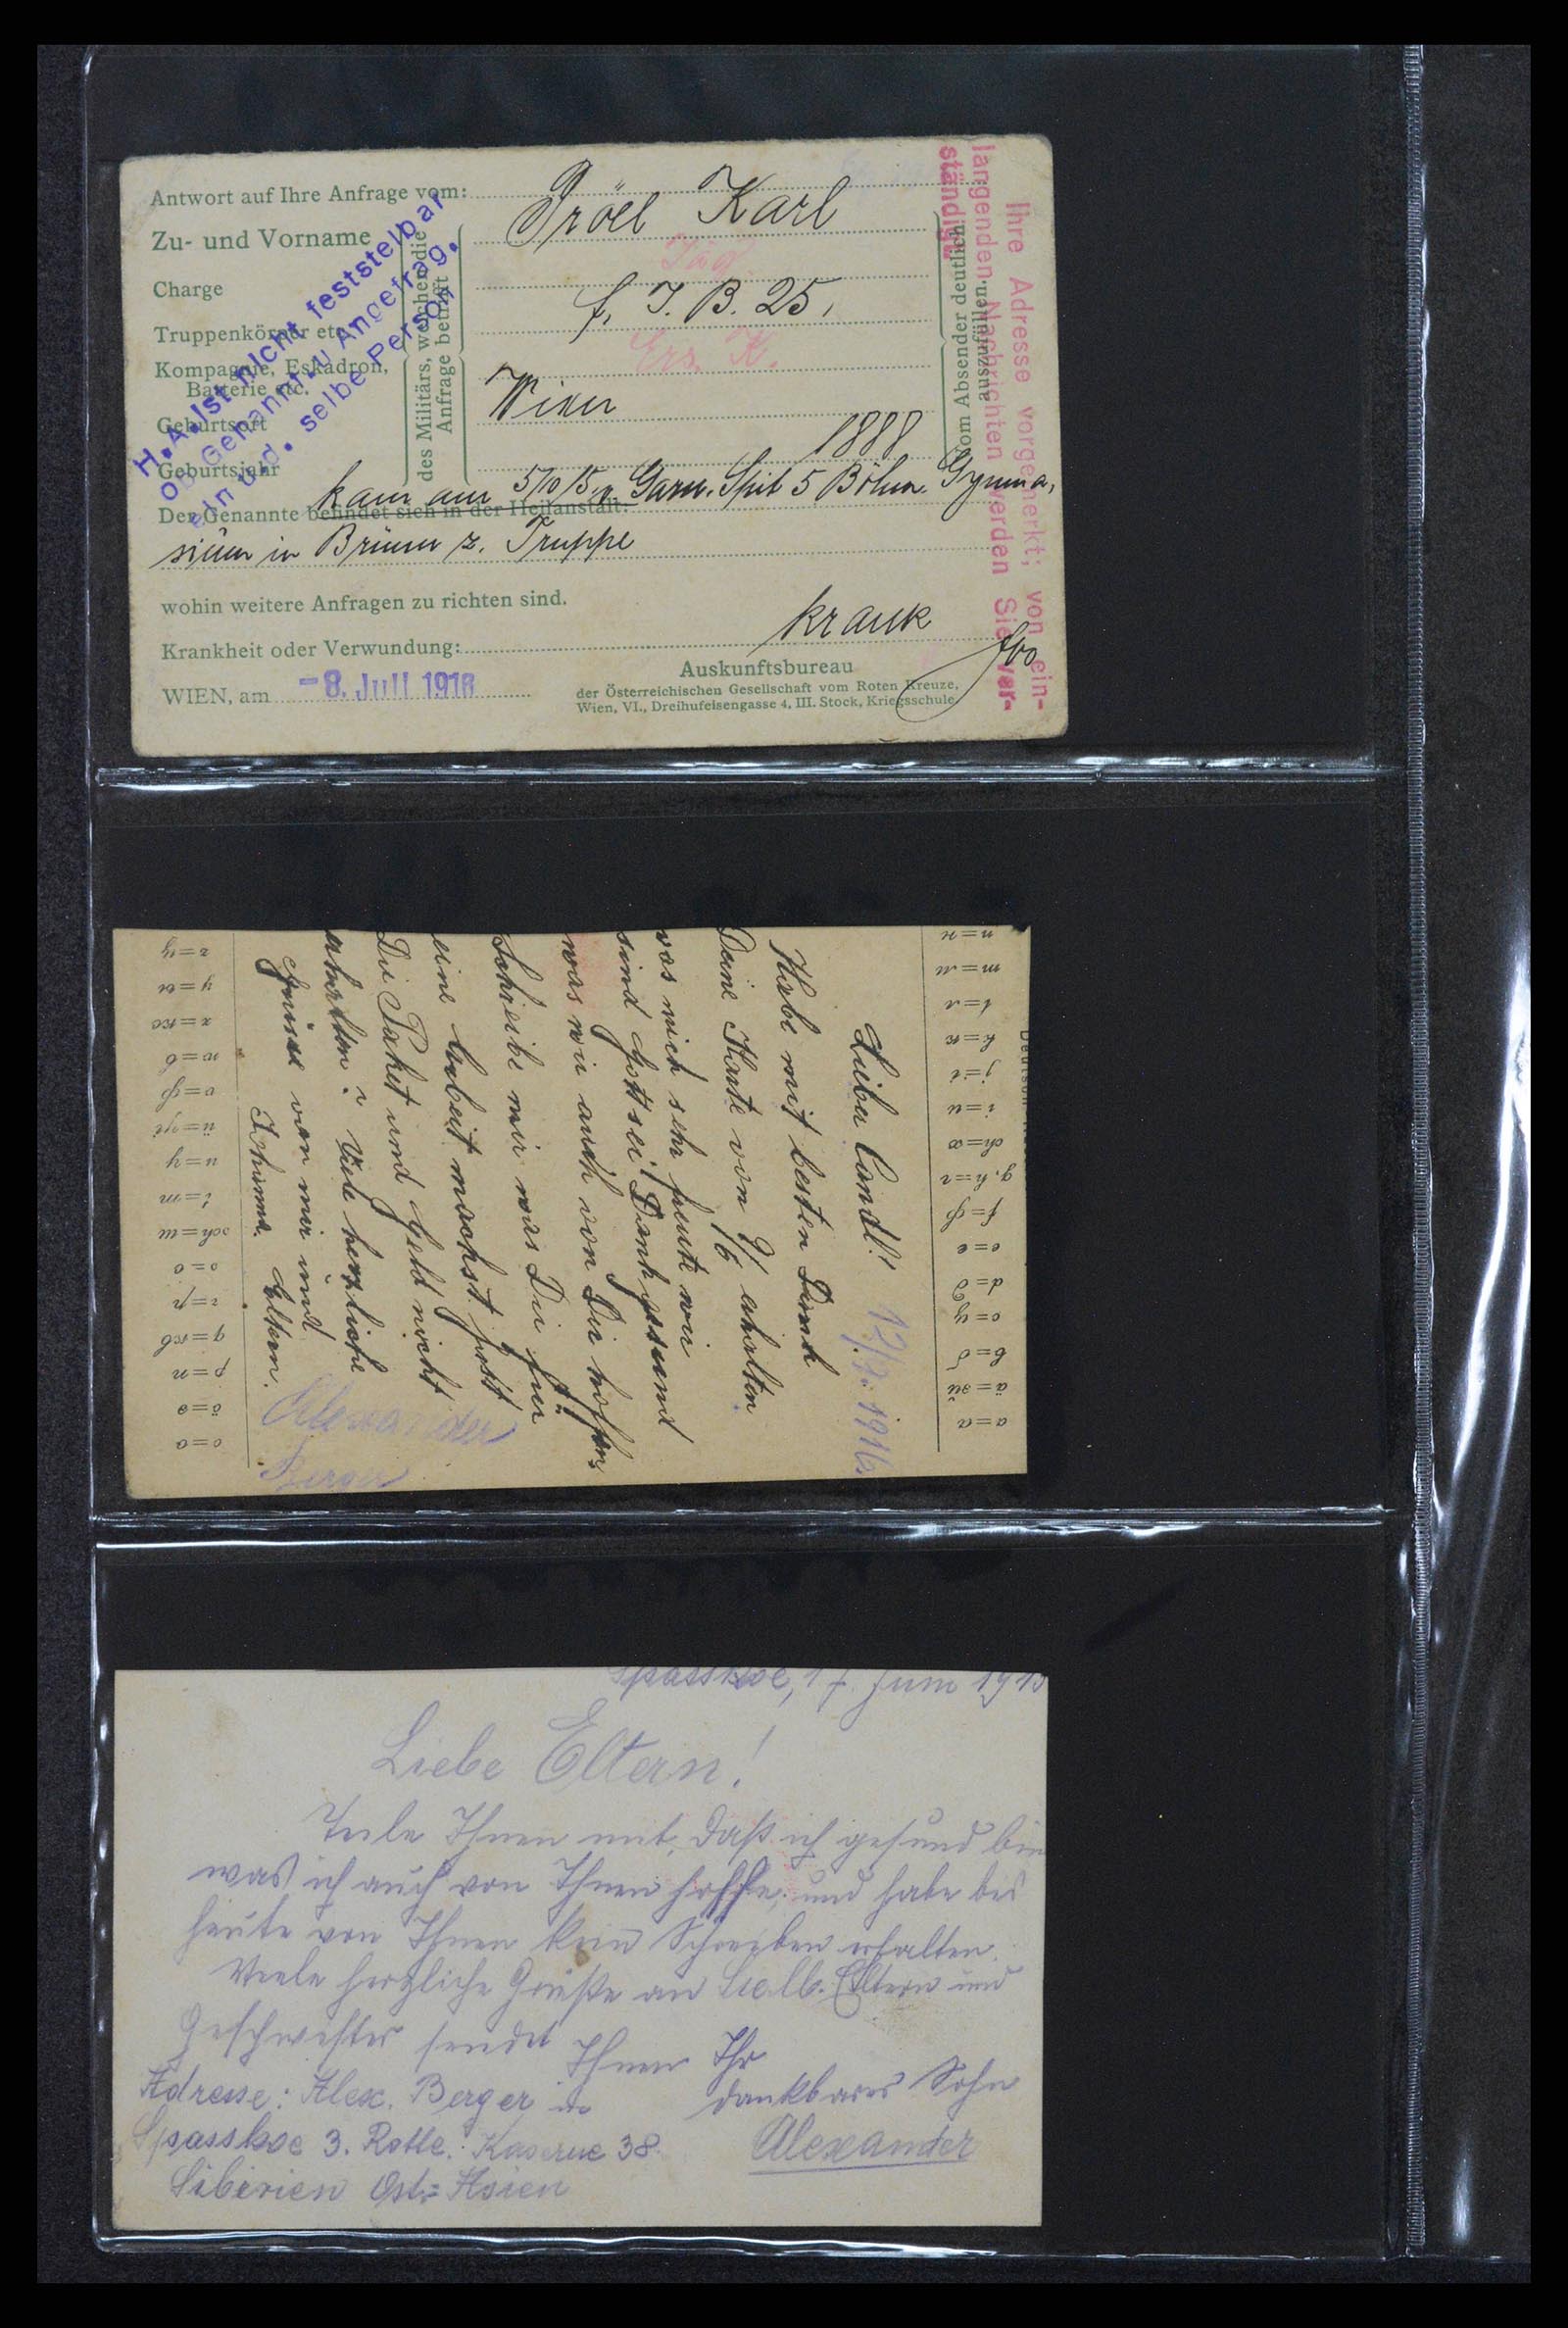 Antwort auf Ihre Anfrage vom:
Zu- und Vorname Karl
Charge
f. J. B. 25.
Truppenkörper etc.
Kompagnie, Eskadron,
Batterie etc.
Ers. K.
Geburtsort Wien
Geburtsjahr 1888
des Militärs, welchen die
Anfrage betrifft
vom Absender deutlich
auszufüllen.
H.A. ist nicht feststellbar
ob Genannt. u Angefrag.
ein und. selbe Person
Ihre Adresse vorgemerkt; von ein-
langenden Nachrichten werden Sie ver-
ständigt
kam am 5/10 15 v. Garn. Spit 5 Böhm. Gymna-
Der Genannte befindet sich in der Heilanstalt:
sium in Brünn z. Truppe
wohin weitere Anfragen zu richten sind.
Krankheit oder Verwundung: krank
WIEN, am -8. Juli 1916
Auskunftsbureau
der Österreichischen Gesellschaft vom Roten Kreuze,
Wien, VI., Dreihufeisengasse 4, III. Stock, Kriegsschule.
12/7. 1916.
Habe mit besten Dank
Deine Karte von erhalten
was mich sehr freute wir
sind Gott sei Dank gesund
was wir auch von Dir hoffen
Schreibe mir was Du für
eine Arbeit machst
Die Paket und Geld nicht
erhalten? Viele herzliche
Grüsse von mir und
Johanna. Eltern.
Alexander
Berger
Spasskoe, 17. Juni 1915
Liebe Eltern!
Teile Ihnen mit, daß ich gesund bin
was ich auch von Ihnen hoffe, und habe bis
heute von Ihnen kein Schreiben erhalten.
Viele herzliche Grüße an Eltern und
Geschwister sendet Ihnen Ihr
dankbarer Sohn
Alexander
Adresse: Alex. Berger in
Spasskoe 3. Rotte. Kaserne 38
Sibirien Ost-Asien